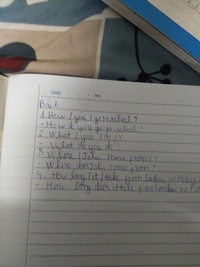 Date No.
Bài 1
1. How / you / get to school ?
- How do you go to school ?
2. What / you / do / ?
- What do you do ?
3. Where / John / come from / ?
- Where does John come from ?
4. How long / it / take from London
- How long does it take from London